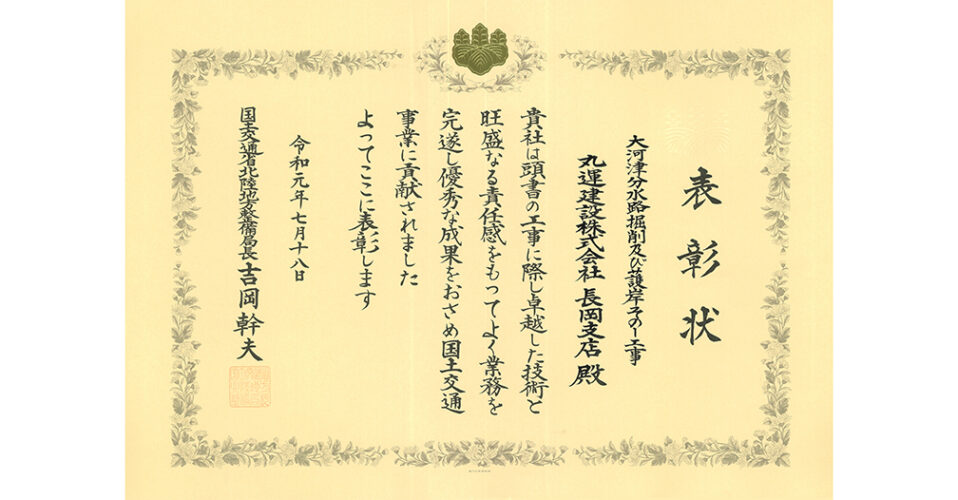 表彰状
大河津分水路掘削及び護岸その1工事
丸運建設株式会社 長岡支店 殿
貴社は頭書の工事に際し卓越した技術と
旺盛なる責任感をもってよく業務を
完遂し優秀な成果をおさめ国土交通
事業に貢献されました
よってここに表彰します
令和元年七月十八日
国土交通省北陸地方整備局長 吉岡幹夫